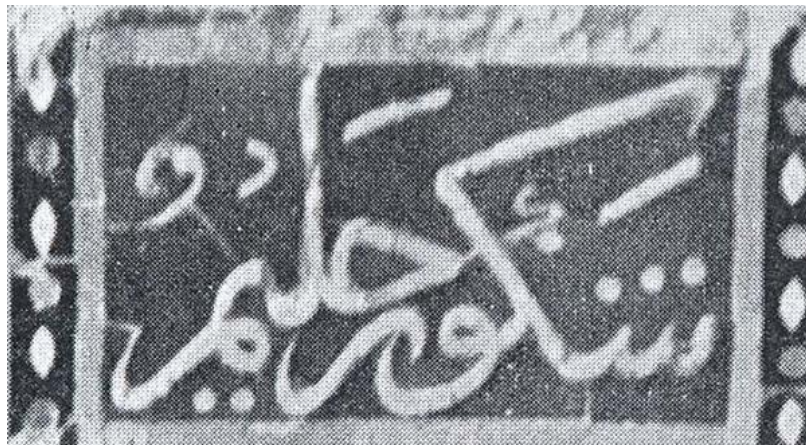 شَكورٌ حَليمٌ